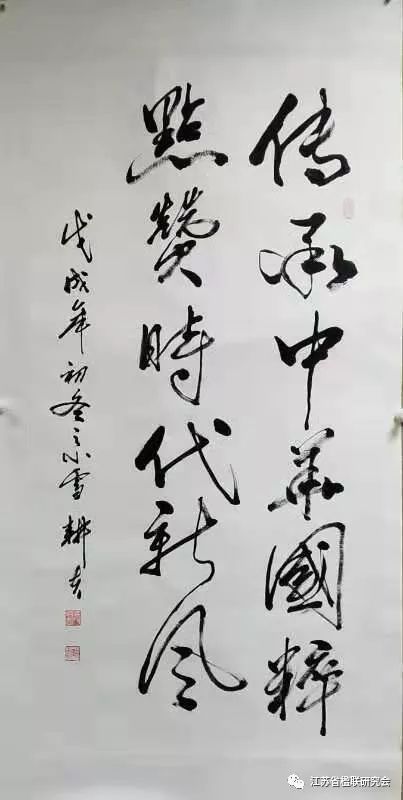 傳承中華國粹
點贊時代新风
戊戌年初冬之小雪 耕夫
江苏省楹联研究会